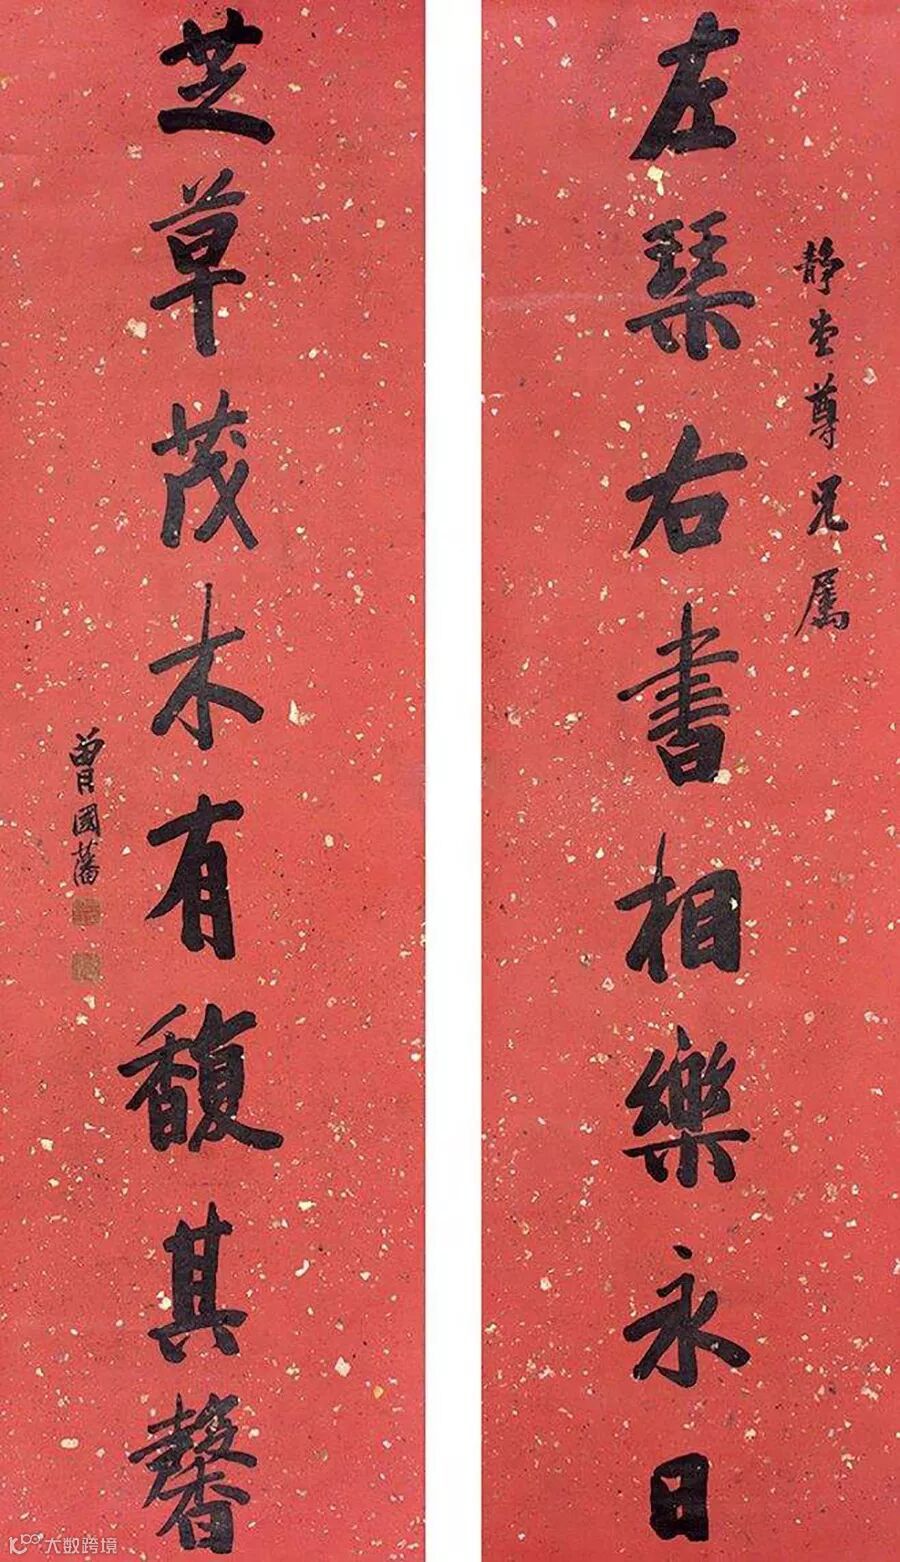 靜堂尊兄屬
左琴右書相樂永日
芝草茂木有馥其馨
曾國藩
大数跨境